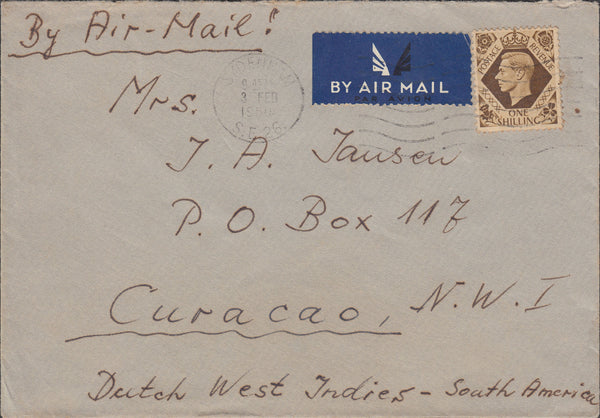 By Air-Mail!
BY AIR MAIL
PAR AVION
POSTAGE REVENUE
ONE SHILLING
3 FEB
S.E.26.
Mrs.
J. A. Jansen
P. O. Box 117
Curacao, N.W.I
Dutch West Indies - South America